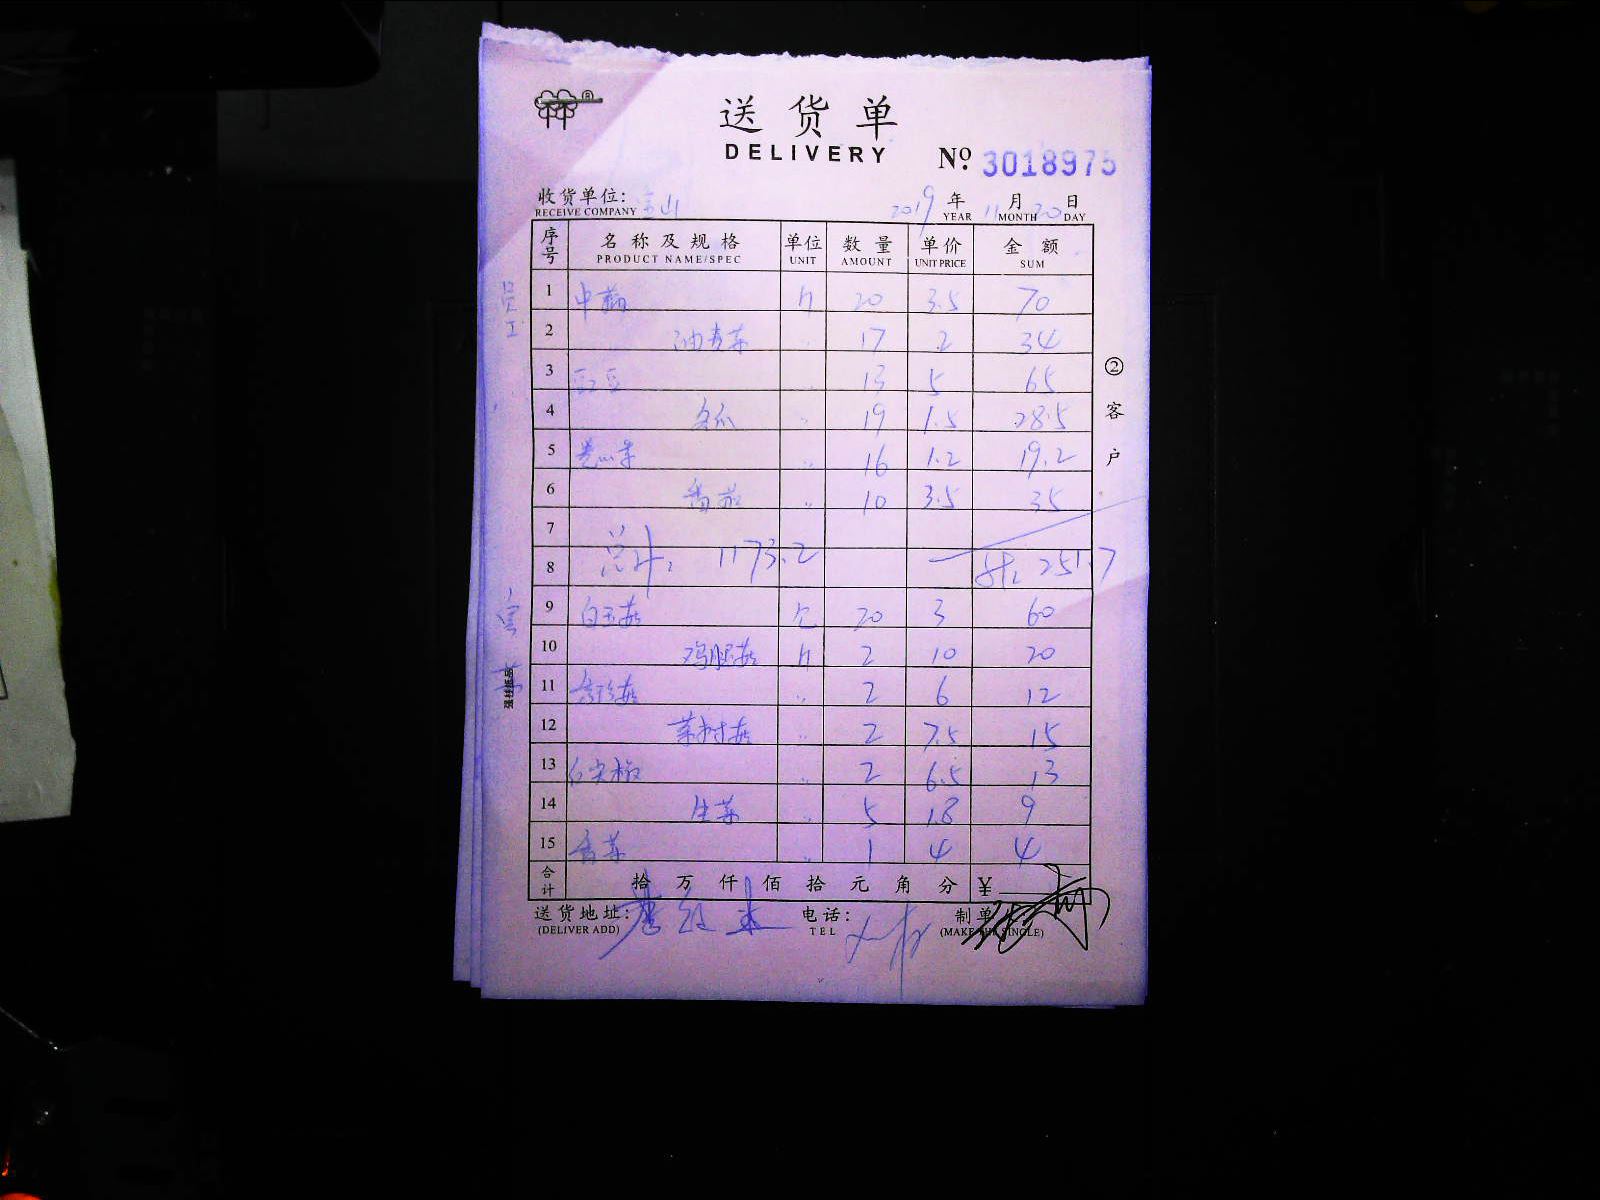 送货单
DELIVERY
Nº 3018975
收货单位: 山 2019 年 11 月 20 日
RECEIVE COMPANY YEAR MONTH DAY
序号 名称及规格 单位 数量 单价 金额
PRODUCT NAME/SPEC UNIT AMOUNT UNIT PRICE SUM
员工
1 中 斤 20 3.5 70
2 油麦菜 〃 17 2 34
3 豇豆 〃 13 5 65
4 冬瓜 〃 19 1.5 28.5
5 卷心菜 〃 16 1.2 19.2
6 番茄 〃 10 3.5 35
7
8 总计: 1173.2 计: 251.7
9 白玉菇 20 3 60
10 鸡腿菇 斤 2 10 20
11 秀珍菇 〃 2 6 12
12 茶树菇 〃 2 7.5 15
13 尖椒 〃 2 6.5 13
14 生菜 〃 5 1.8 9
15 香菜 〃 1 4 4
合计 拾 万 仟 佰 拾 元 角 分 ¥
送货地址: 电话: 制单
(DELIVER ADD) TEL (MAKE THE SINGLE)
② 客户
强林纸品